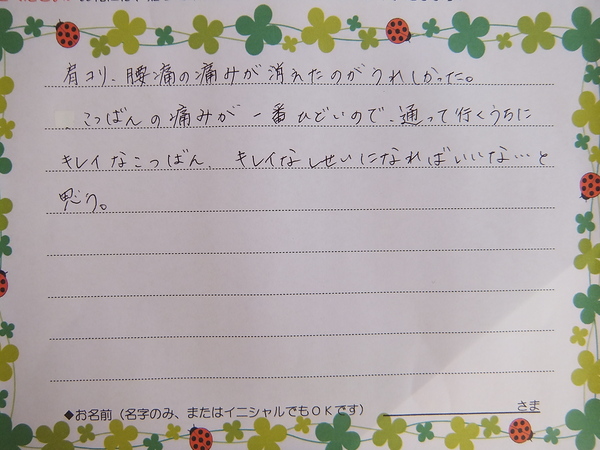 肩コリ、腰痛の痛みが消えたのがうれしかった。
こつばんの痛みが一番ひどいので、通って行くうちに
キレイなこつばん、キレイなしせいになればいいな…と
思う。
◆お名前（名字のみ、またはイニシャルでもＯＫです） さま